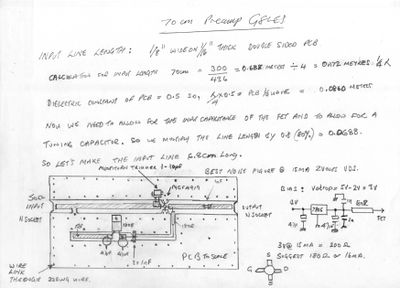 70cm Preamp G8LES
INPUT LINE LENGTH: 1/8" WIDE ON 1/16" THICK DOUBLE SIDED PCB
CALCULATION FOR INPUT LENGTH 70cm = 300/436 = 0.688 METRES ÷ 4 = 0.172 METRES. 1/4 λ
DIELECTRIC CONSTANT OF PCB = 0.5 SO, λ/4 X 0.5 = PCB 1/4 WAVE = 0.0860 METRES
NOW WE NEED TO ALLOW FOR THE INPUT CAPACITANCE OF THE FET AND TO ALLOW FOR A
TUNING CAPACITOR. SO WE MULTIPLY THE LINE LENGTH BY 0.8 (80%) = 0.0688.
SO LET'S MAKE THE INPUT LINE 6.8cm LONG.
BEST NOISE FIGURE @ 15MA 2VOLTS VDS.
50Ω
INPUT
N SOCKET
OUTPUT
N SOCKET
BIAS: VDROP = 5V-2V = 3V
3V @ 15MA = 200Ω
SUGGEST 180Ω OR 16MA.
PCB TO SCALE
WIRE
LINK
THROUGH 22SWG WIRE.
G
S
D
S